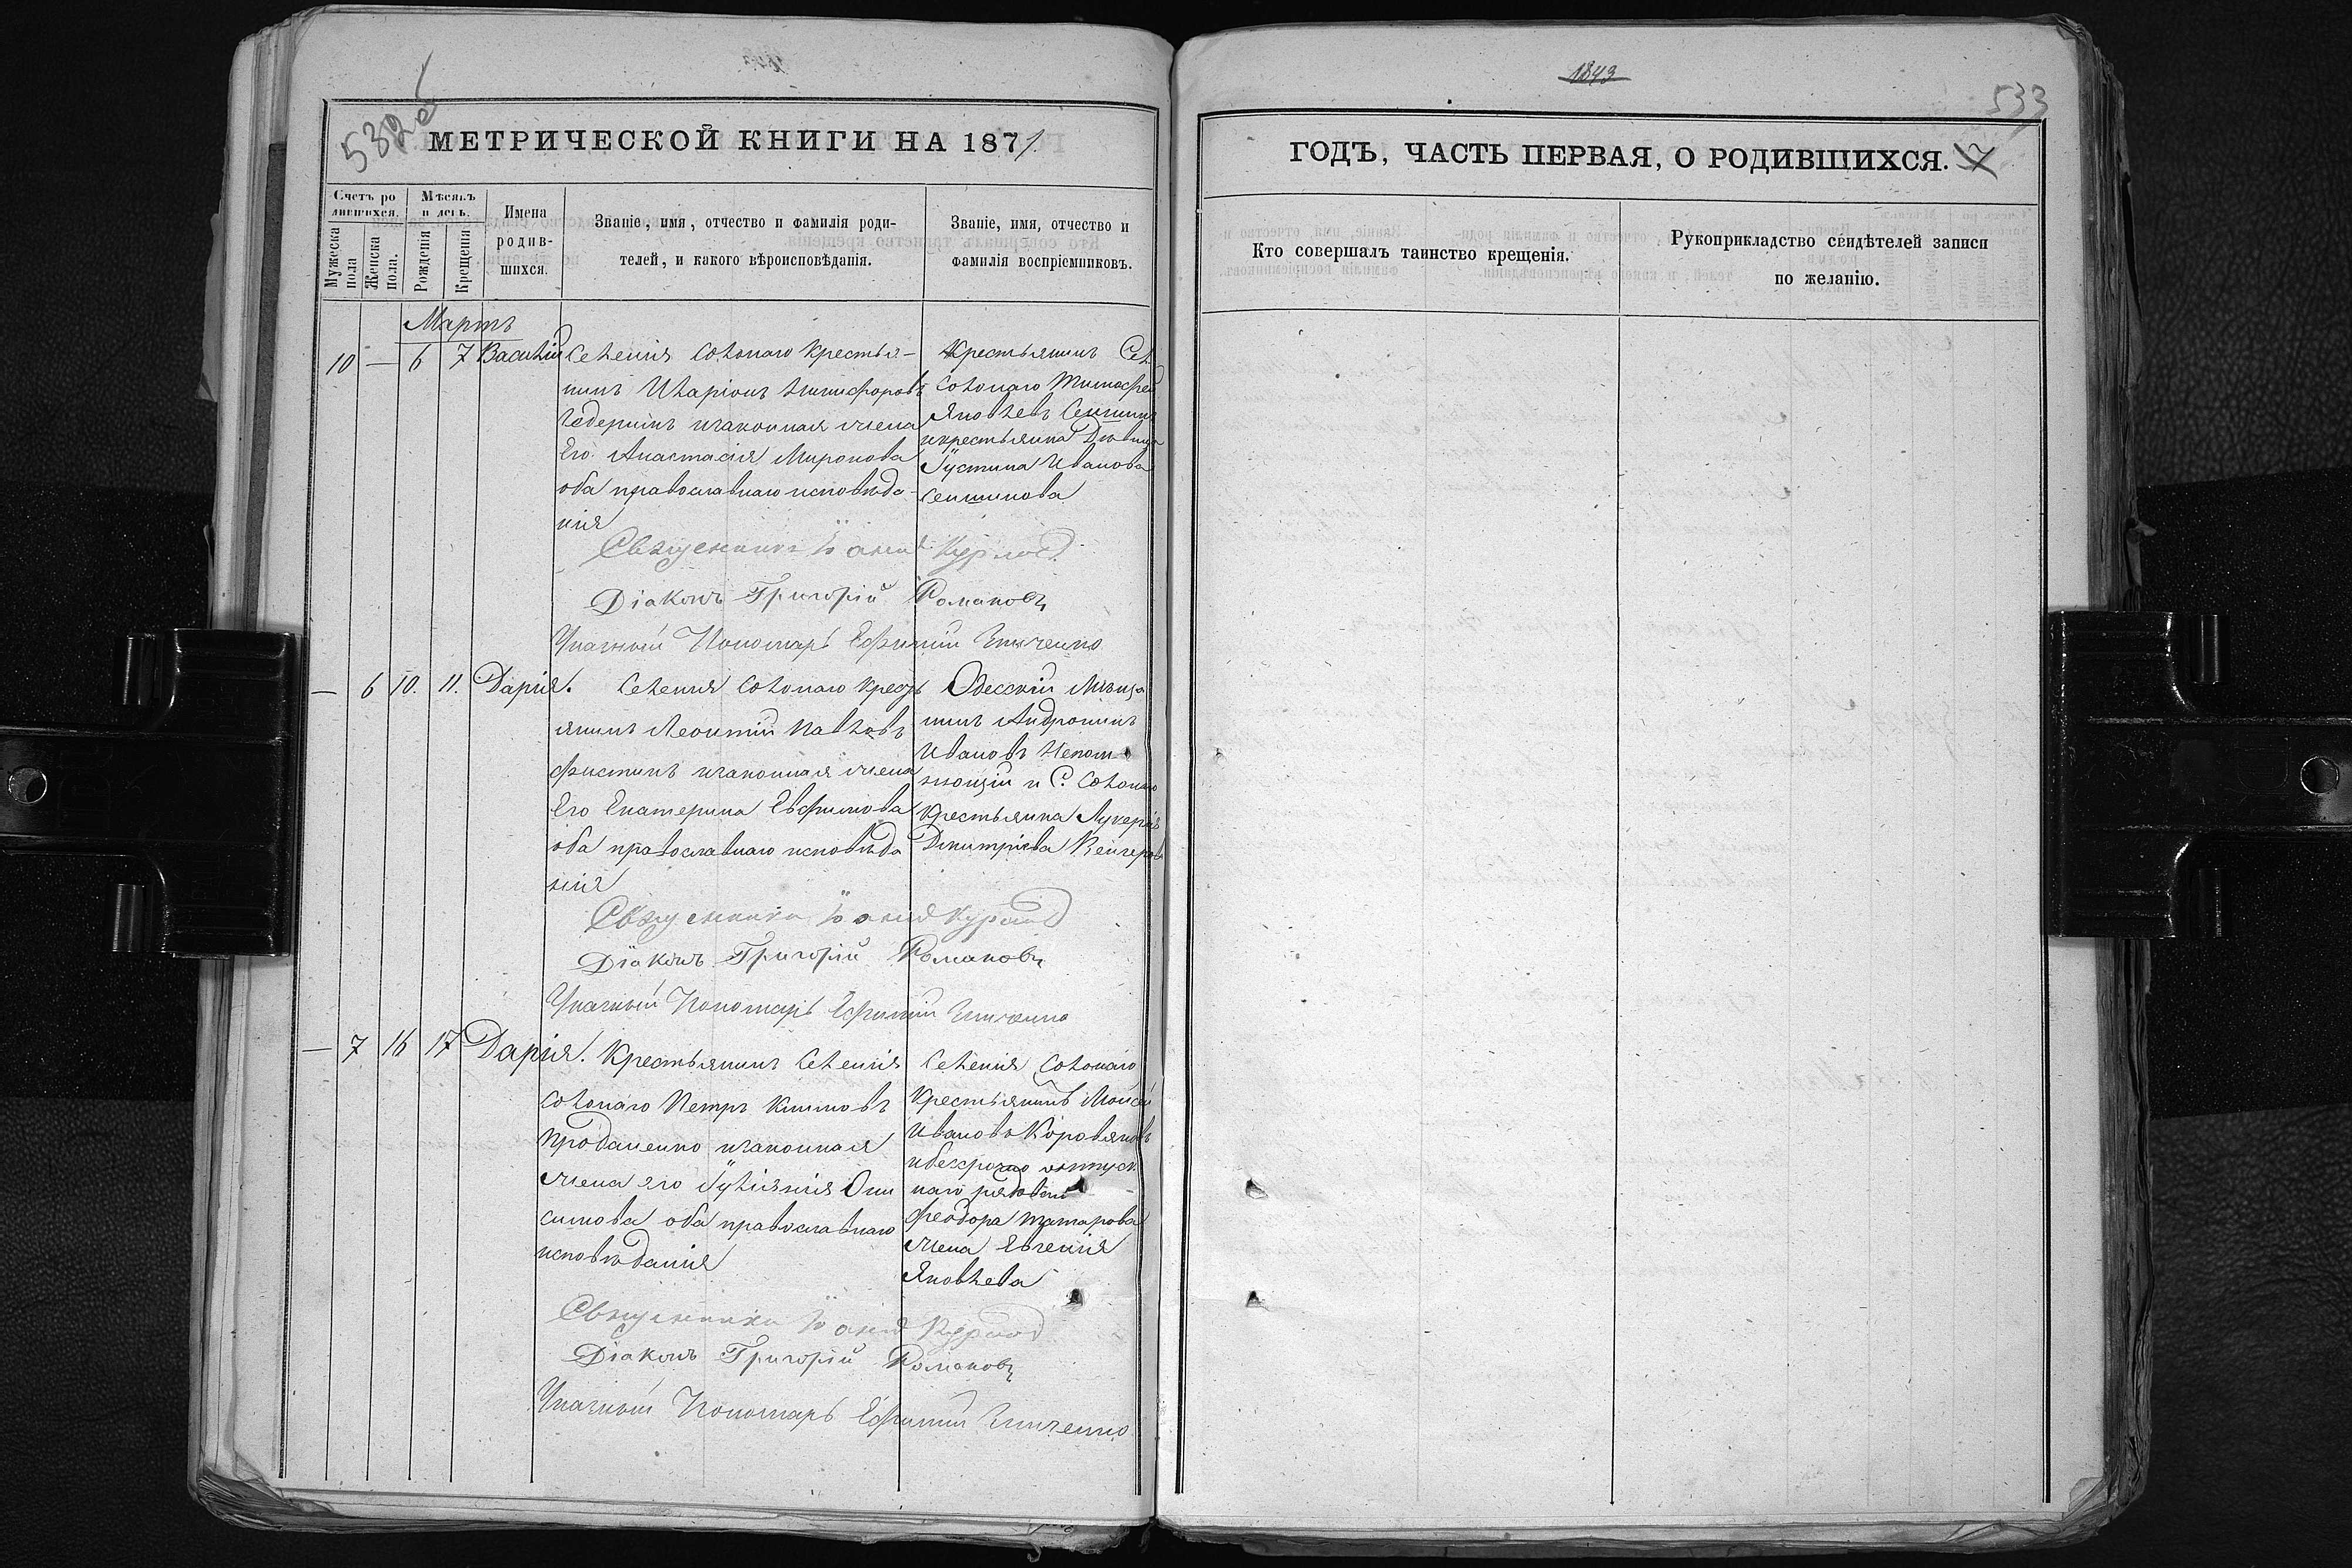 532об
МЕТРИЧЕСКОЙ КНИГИ НА 1871
Счетъ ро
дившихся.
Мѣсяцъ
и день.
Мужеска
пола
Женска
пола.
Рожденія
Крещенія
Имена
родив-
шихся.
Званіе, имя, отчество и фамилія роди-
телей, и какого вѣроисповѣданія.
Званіе, имя, отчество и
фамилія воспріемниковъ.
Мартъ
10 — 6 7 Василій
Селенія Солонаго Крестья-
нинъ Иларіонъ Никифоровъ
изаконная жена
Его Анастасія Миронова
оба православнаго исповѣда-
нія
Крестьянинъ Сел
Солонаго Тимофей
Яковлевъ
икрестьянка Дѣвица
Іустина Иванова
Священникъ Іоаннъ
Діаконъ Григорій Романовъ
Указный Пономарь Ефимій
— 6 10. 11. Дарія.
Селенія Солонаго Кресть
янинъ Леонтій Павловъ
изаконная жена
Его Екатерина Евфимова
оба православнаго исповѣда
нія
Одесскій Мѣща
нинъ Андроникъ
Ивановъ Непом-
нющій и С. Солонаго
Крестьянка Лукерія
Димитріева
Священникъ Іоаннъ
Діаконъ Григорій Романовъ
Указный Пономарь Ефимій
— 7 16 17 Дарія.
Крестьянинъ Селенія
Солонаго Петръ Климовъ
Проданенко изаконная
жена его Іуліянія Они
симова оба православнаго
исповѣданія
Селенія Солонаго
Крестьянинъ Моисей
Ивановъ Коровяковъ
ибезсрочно отпуск
наго рядоваго
Феодора Татарова
жена Евгенія
Яковлева
Священникъ Іоаннъ
Діаконъ Григорій Романовъ
Указный Пономарь Ефимій
1843
533
ГОДЪ, ЧАСТЬ ПЕРВАЯ, О РОДИВШИХСЯ. 7
Кто совершалъ таинство крещенія.
Рукоприкладство свидѣтелей записи
по желанію.